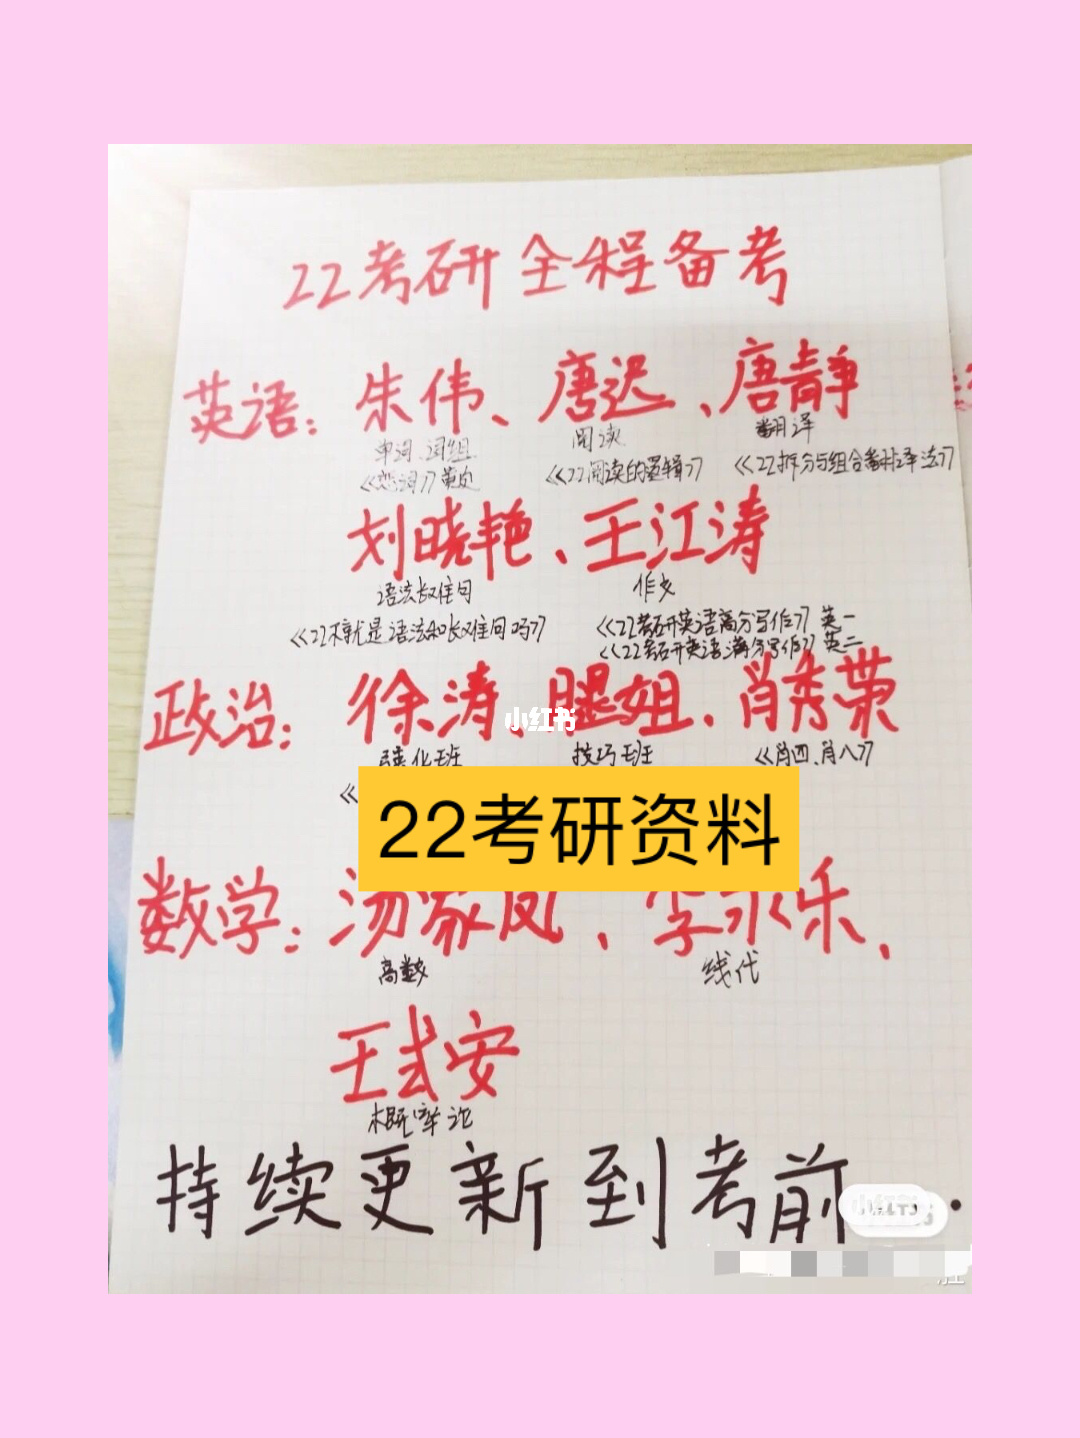 22考研全程备考
英语：朱伟、唐迟、唐静
单词、词组 阅读 翻译
《恋词》 《22阅读的逻辑》 《22拆分与组合翻译法》
刘晓艳、王江涛
语法长难句 作文
《22不就是语法和长难句吗》 《22考研英语高分写作》英一
《22考研英语满分写作》英二
政治：徐涛、腿姐、肖秀荣
小红书
强化班 技巧班 《肖四、肖八》
22考研资料
数学：汤家凤、李永乐、
高数 线代
王式安
概率论
持续更新到考前
小红书